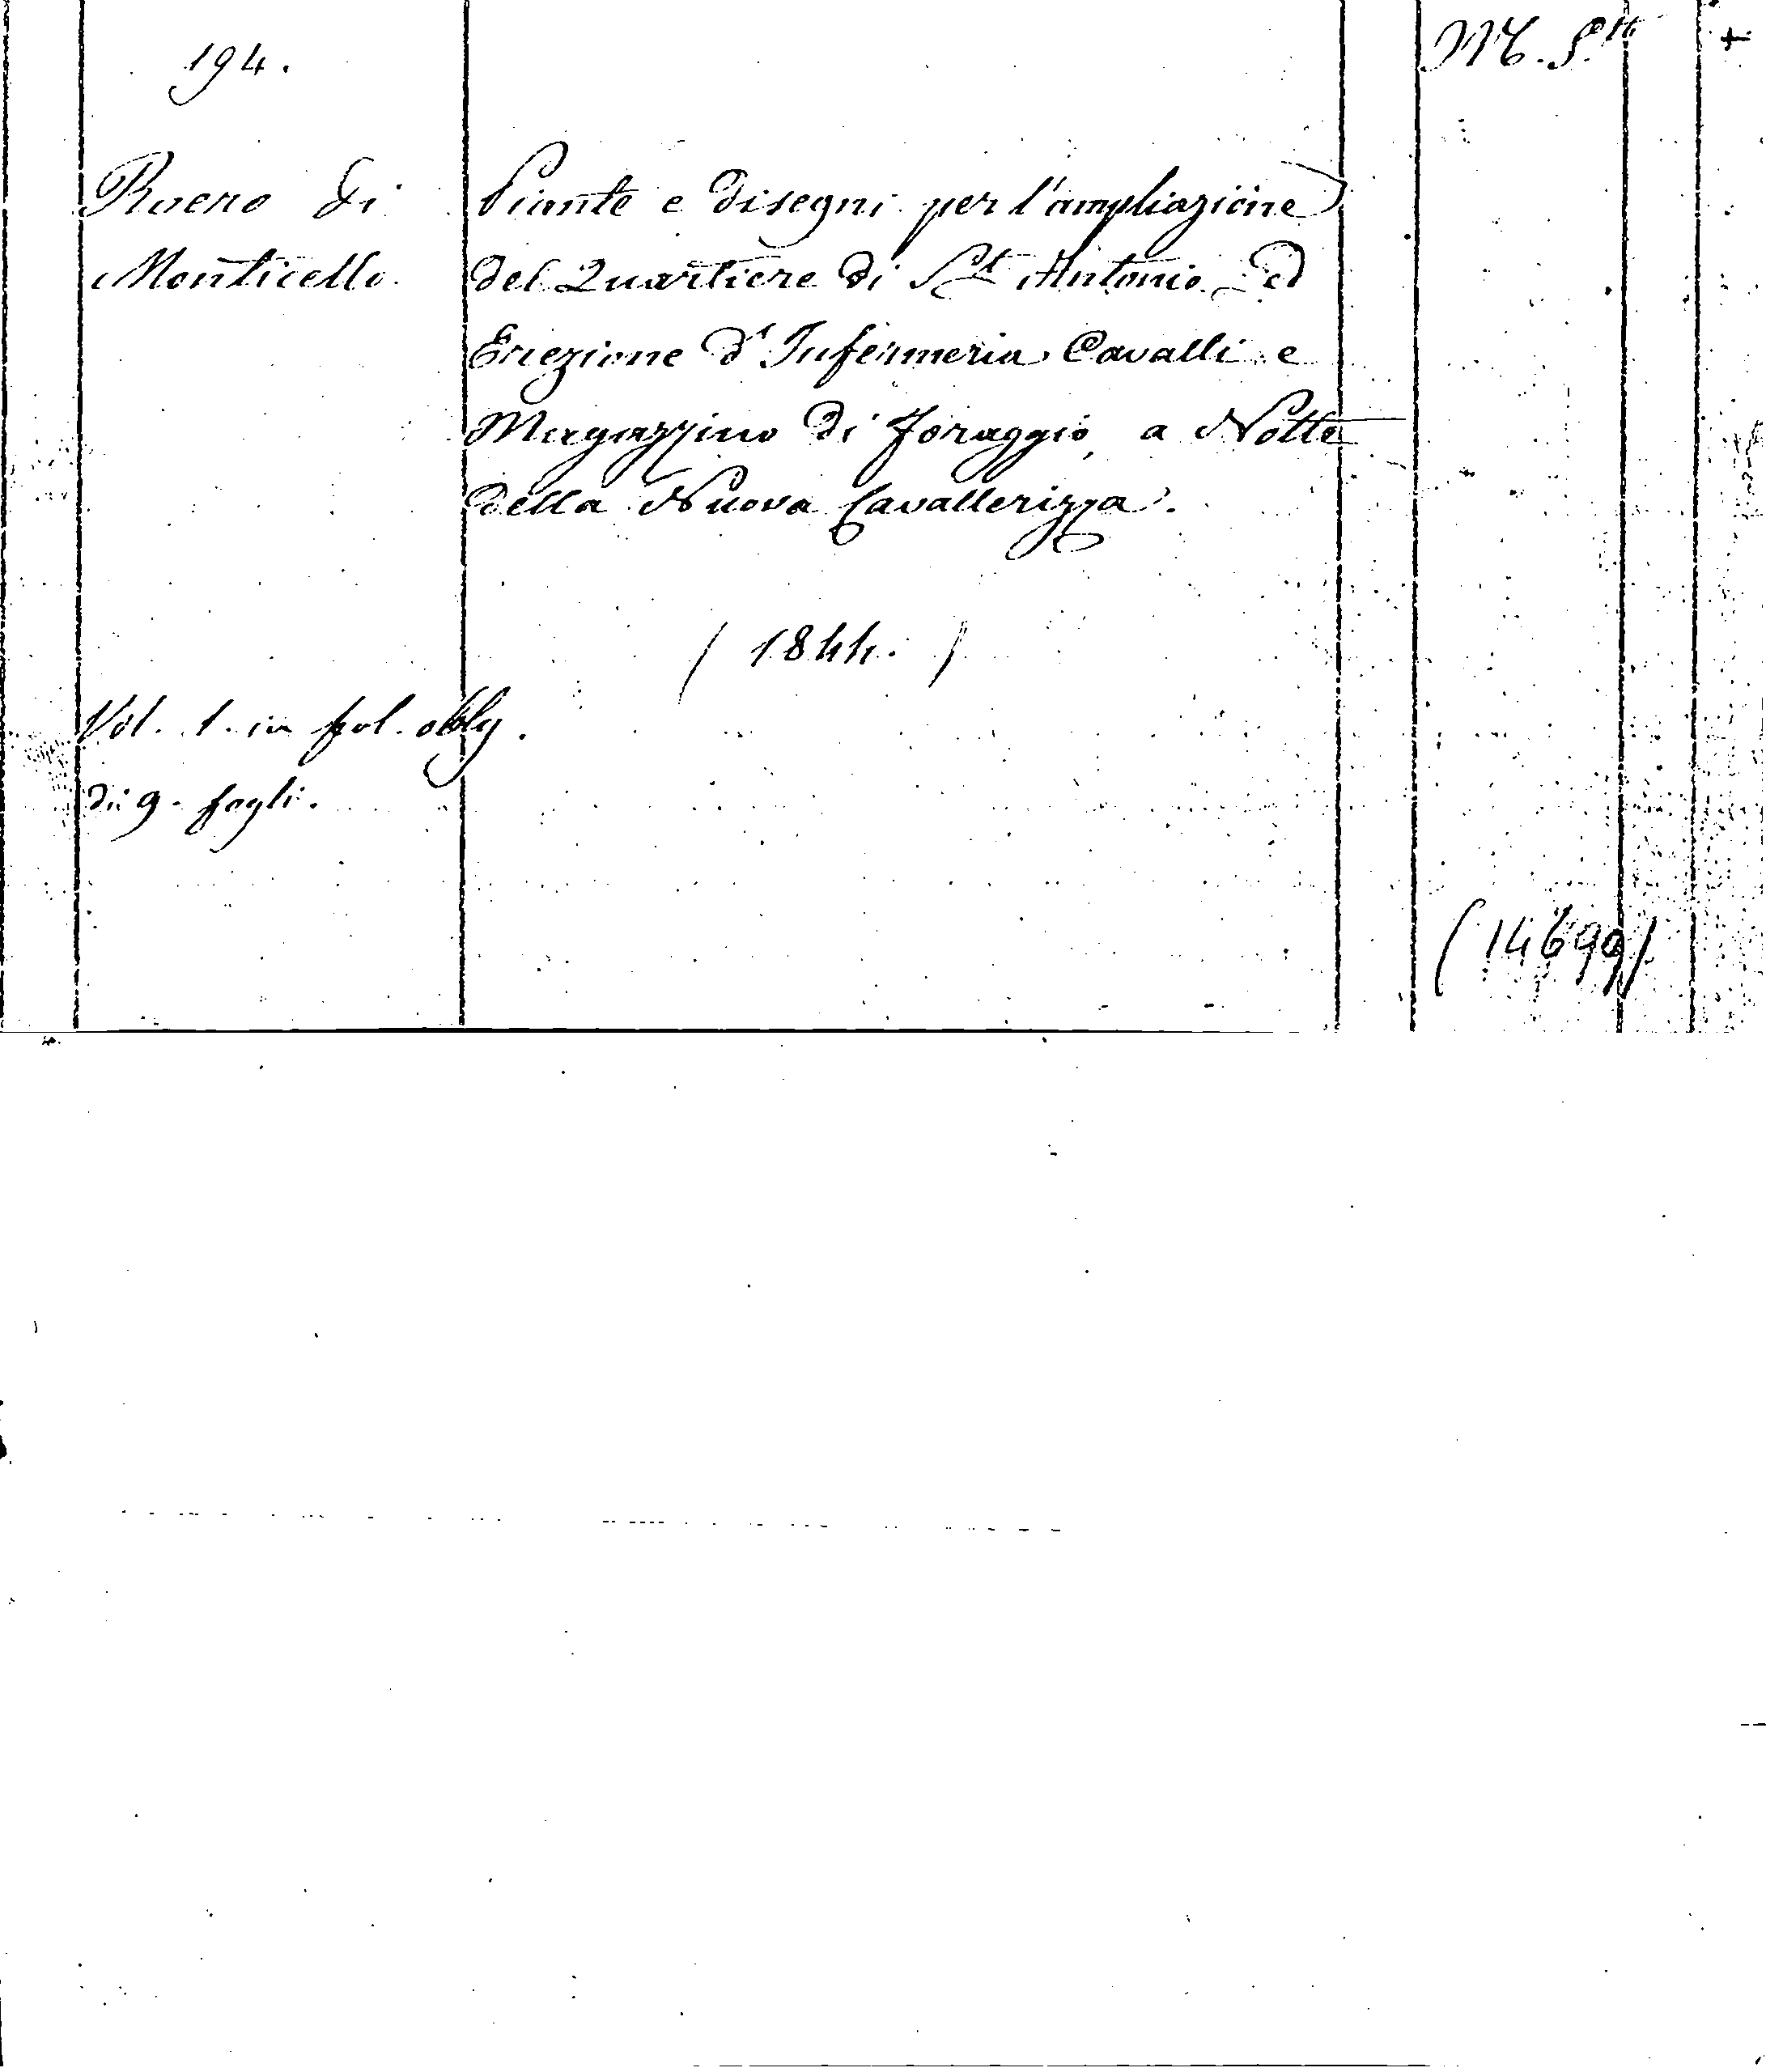 194.
M. S.tti +
Roero di
Monticello.
Piante e disegni per l'ampliazione
del Quartiere di St Antonio ed
Erezione d'Infermeria Cavalli e
Magazzino di foraggio, a Notte
della Nuova Cavallerizza.
( 1844. )
Vol. 1. in fol. obbl.
di 9. fogli.
(14699)